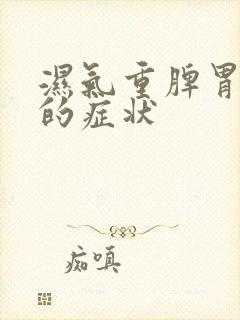 濕氣重脾胃
的症状
痴嗔